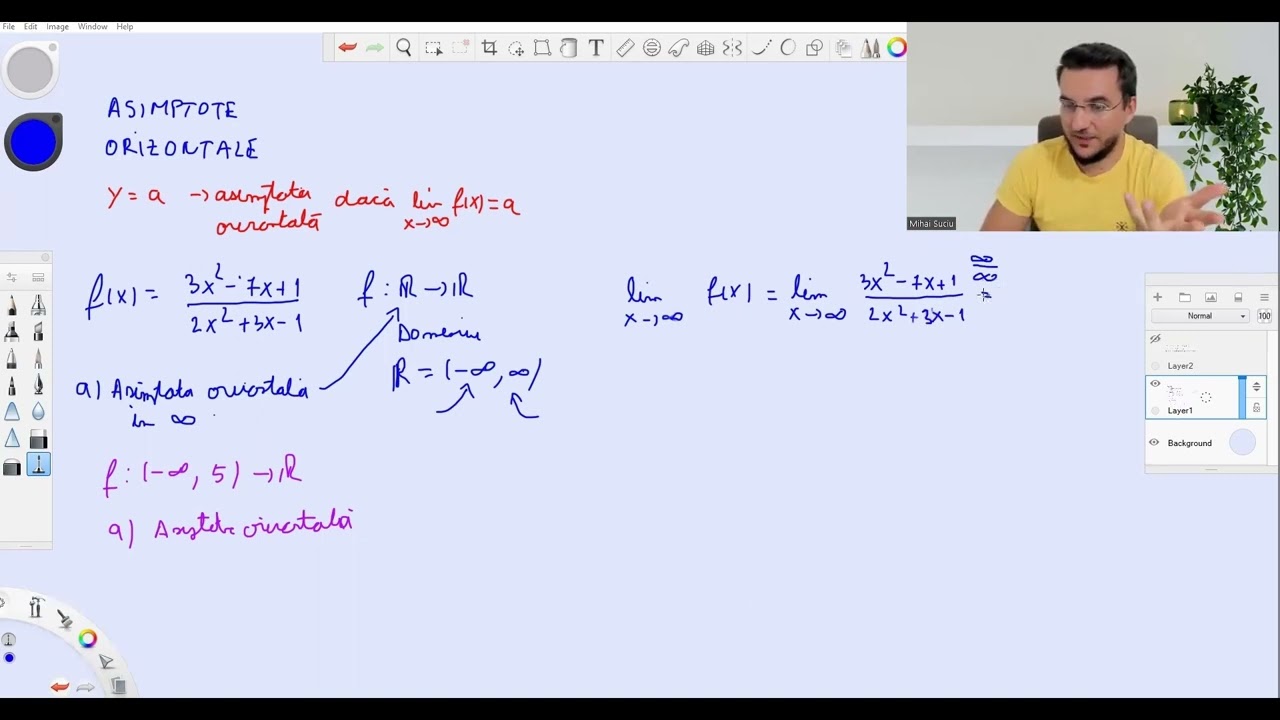 File Edit Image Window Help
ASIMPTOTE
ORIZONTALE
y = a → asimptota orizontală dacă lim x→∞ f(x) = a
f(x) = (3x² - 7x + 1) / (2x² + 3x - 1)
f : ℝ → ℝ
Domeniu
ℝ = (-∞, ∞)
a) Asimptota orizontală
în ∞
f : (-∞, 5) → ℝ
a) orizontală
lim x→∞ f(x) = lim x→∞ (3x² - 7x + 1) / (2x² + 3x - 1) ∞/∞ =
Mihai Suciu
Normal 100
Layer2
Layer1
Background